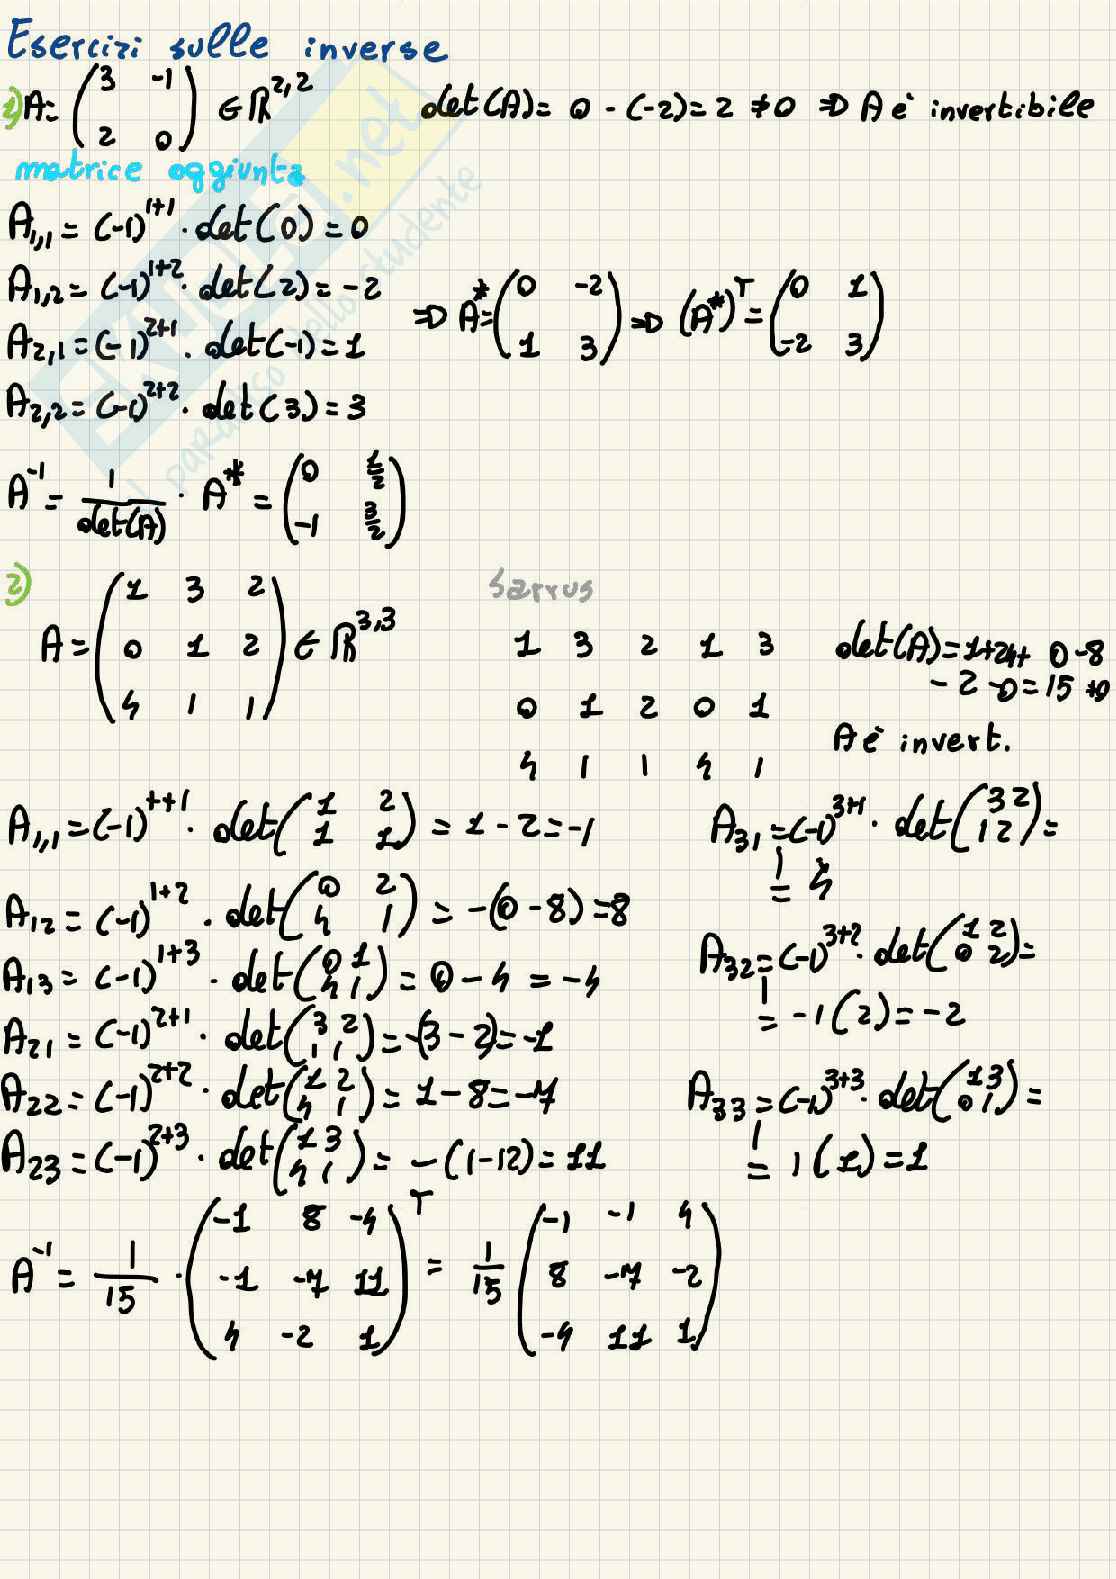 Esercizi sulle inverse
1) A = (3 -1; 2 0) ∈ ℝ^2,2    det(A) = 0 - (-2) = 2 ≠ 0 ⇒ A è invertibile
matrice aggiunta
A1,1 = (-1)^1+1 · det(0) = 0
A1,2 = (-1)^1+2 · det(2) = -2
A2,1 = (-1)^2+1 · det(-1) = 1
A2,2 = (-1)^2+2 · det(3) = 3
⇒ A* = (0 -2; 1 3) ⇒ (A*)^T = (0 1; -2 3)
A^-1 = 1/det(A) · A* = (0 1/2; -1 3/2)
2) A = (1 3 2; 0 1 2; 4 1 1) ∈ ℝ^3,3
Sarrus
1 3 2 1 3
0 1 2 0 1
4 1 1 4 1
det(A) = 1+24+ 0-8
-2-0=15 ≠0
A è invert.
A1,1 = (-1)^1+1 · det(1 2; 1 1) = 1-2=-1
A12 = (-1)^1+2 · det(0 2; 4 1) = -(0-8)=8
A13 = (-1)^1+3 · det(0 1; 4 1) = 0-4 = -4
A21 = (-1)^2+1 · det(3 2; 1 1) = -(3-2)=-1
A22 = (-1)^2+2 · det(1 2; 4 1) = 1-8=-7
A23 = (-1)^2+3 · det(1 3; 4 1) = -(1-12)=11
A31 = (-1)^3+1 · det(3 2; 1 2) =
= 4
A32 = (-1)^3+2 · det(1 2; 0 2) =
= -1(2) = -2
A33 = (-1)^3+3 · det(1 3; 0 1) =
= 1(1) = 1
A^-1 = 1/15 · (-1 8 -4; -1 -7 11; 4 -2 1)^T = 1/15 (-1 -1 4; 8 -7 -2; -4 11 1)
.net
il paradiso dello studente